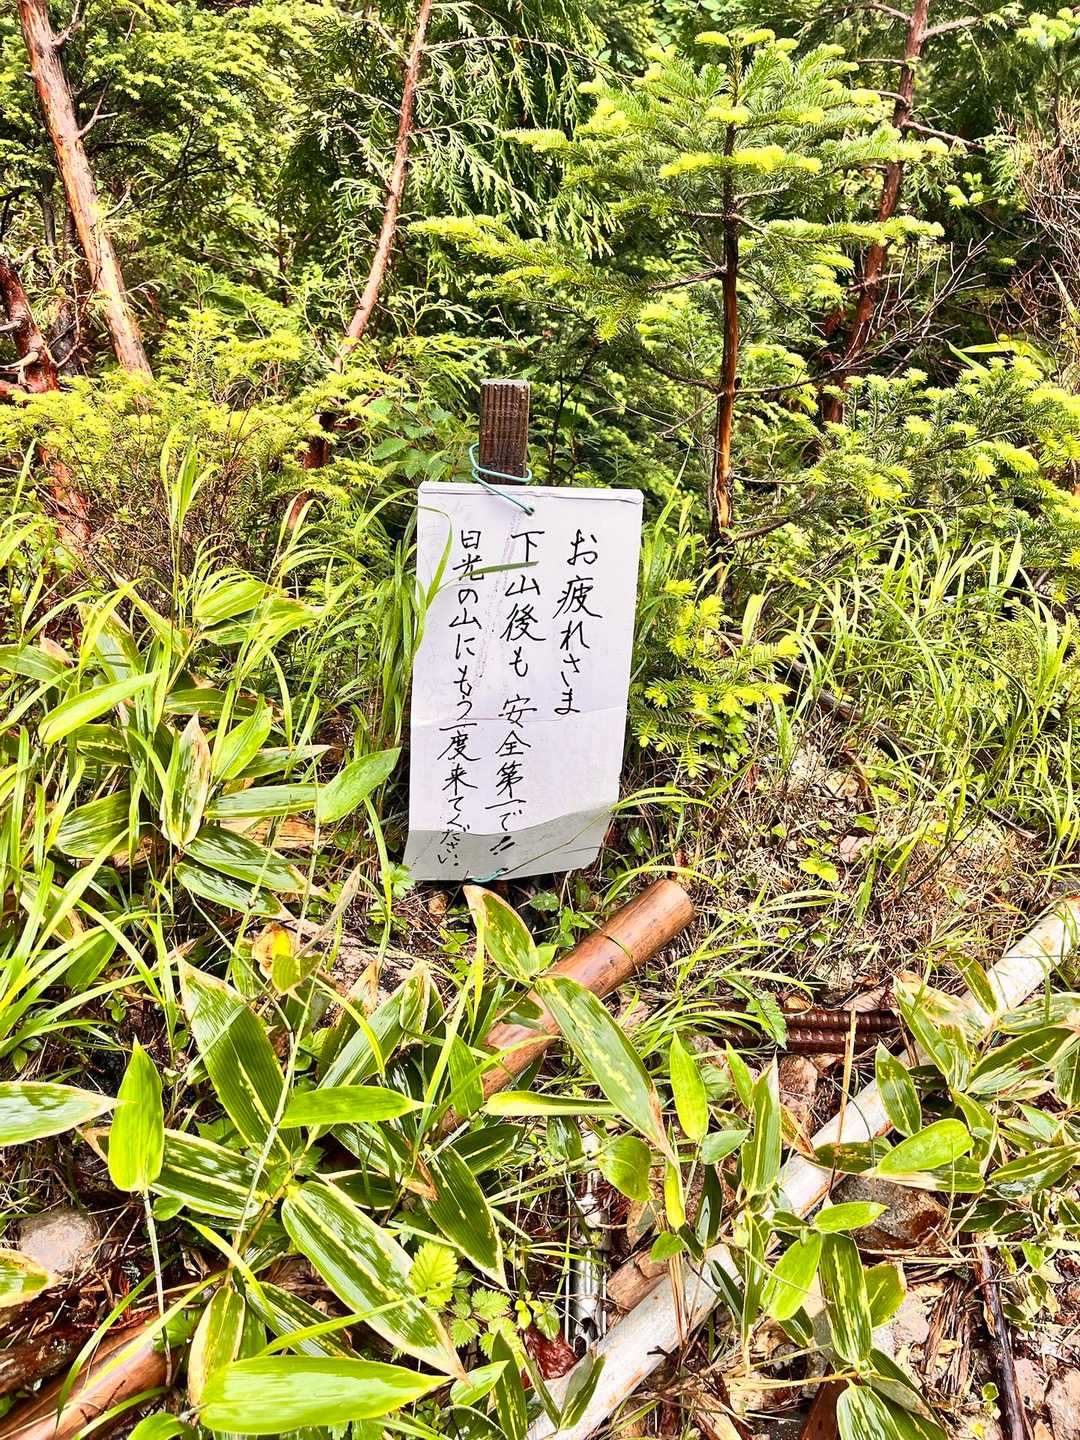 お疲れさま
下山後も 安全第一で!!
日光の山にもう一度来てください。